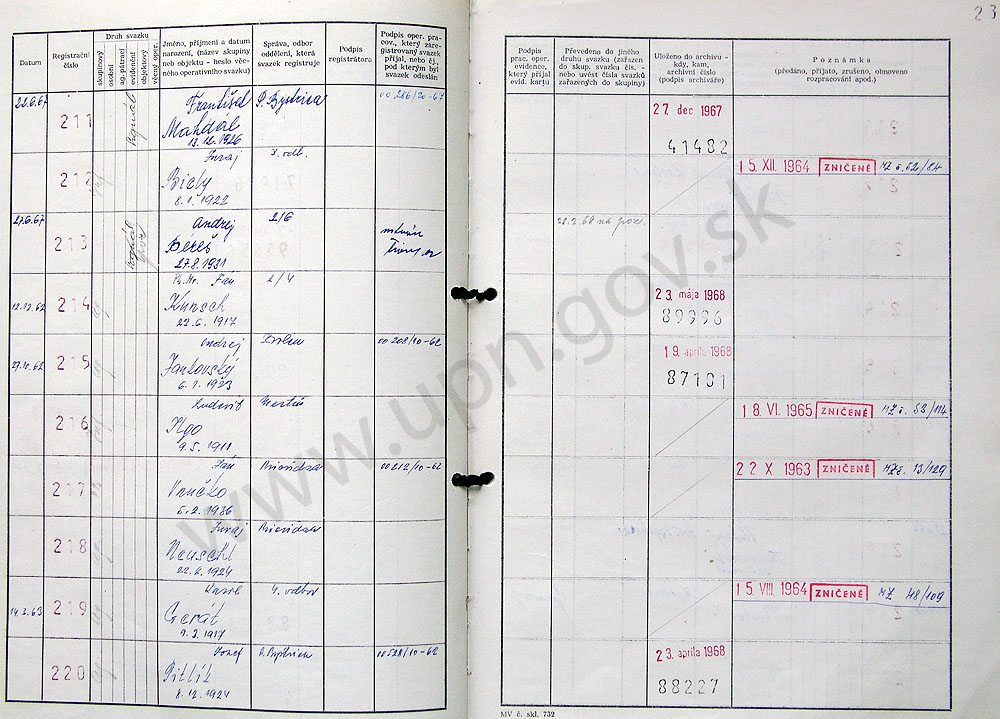 23
Datum
Registrační číslo
Druh svazku
skupinový
osobní
ag. pátrací
evidenční
objektový
věcný oper.
Jméno, příjmení a datum
narození, (název skupiny
neb objektu - heslo věc-
ného operativního svazku)
Správa, odbor
oddělení, která
svazek registruje
Podpis
registrátora
Podpis oper. pra-
cov., který zare-
gistrovaný svazek
přijal, nebo čj.,
pod kterým byl
svazek odeslán
22.6.67
211
František
Mahdál
13.12.1926
P. Bystrica
00286/20-67
212
Juraj
Biely
8.1.1922
I. odb.
27.6.67
213
Andrej
Bereš
27.8.1931
2/6
214
Ján
Kunsch
23.6.1917
2/4
215
Ondrej
Jankovský
6.1.1923
00208/10-62
216
Ludovit
Kgo
9.5.1911
Martin
217
Ján
Vručko
5.2.1936
Prievidza
00212/10-62
218
Juraj
Neuschl
22.6.1924
Prievidza
14.3.63
219
Karol
Gerát
9.3.1917
4. odbor
220
Jozef
Pitlík
8.12.1924
P. Bystrica
00528/10-62
Podpis
prac. oper.
evidence,
který přijal
evid. kartu
Převedeno do jiného
druhu svazku (zařazen
do skup. svazku čís. -
nebo uvést čísla svazků
zařazených do skupiny)
Uloženo do archivu -
kdy, kam,
archivní číslo
(podpis archiváře)
Poznámka
(předáno, přijato, zrušeno, obnoveno
rozpracování apod.)
27. dec 1967
41482
15. XII. 1964 ZNIČENÉ MZ č. 62/84
22.2.68 na
23. mája 1968
89996
19. apríla 1968
87101
18. VI. 1965 ZNIČENÉ MZ č. 53/114
22 X 1963 ZNIČENÉ MZ č. 13/129
15. VIII. 1964 ZNIČENÉ MZ 48/109
23. apríla 1968
88227
MV č. skl. 752
www.upn.gov.sk